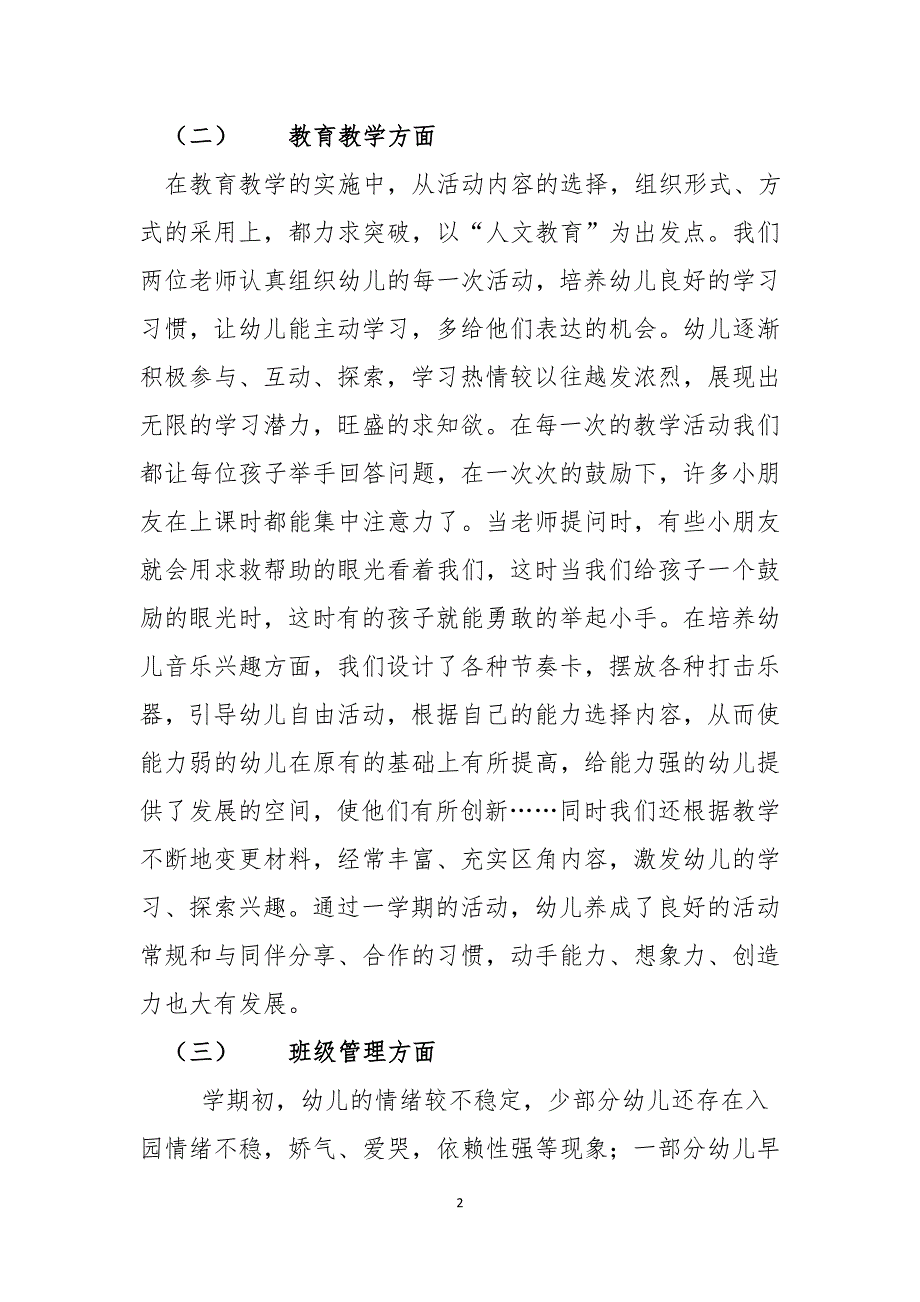 （二）　　教育教学方面
在教育教学的实施中，从活动内容的选择，组织形式、方
式的采用上，都力求突破，以“人文教育”为出发点。我们
两位老师认真组织幼儿的每一次活动，培养幼儿良好的学习
习惯，让幼儿能主动学习，多给他们表达的机会。幼儿逐渐
积极参与、互动、探索，学习热情较以往越发浓烈，展现出
无限的学习潜力，旺盛的求知欲。在每一次的教学活动我们
都让每位孩子举手回答问题，在一次次的鼓励下，许多小朋
友在上课时都能集中注意力了。当老师提问时，有些小朋友
就会用求救帮助的眼光看着我们，这时当我们给孩子一个鼓
励的眼光时，这时有的孩子就能勇敢的举起小手。在培养幼
儿音乐兴趣方面，我们设计了各种节奏卡，摆放各种打击乐
器，引导幼儿自由活动，根据自己的能力选择内容，从而使
能力弱的幼儿在原有的基础上有所提高，给能力强的幼儿提
供了发展的空间，使他们有所创新……同时我们还根据教学
不断地变更材料，经常丰富、充实区角内容，激发幼儿的学
习、探索兴趣。通过一学期的活动，幼儿养成了良好的活动
常规和与同伴分享、合作的习惯，动手能力、想象力、创造
力也大有发展。
（三）　　班级管理方面
学期初，幼儿的情绪较不稳定，少部分幼儿还存在入
园情绪不稳，娇气、爱哭，依赖性强等现象；一部分幼儿早
2